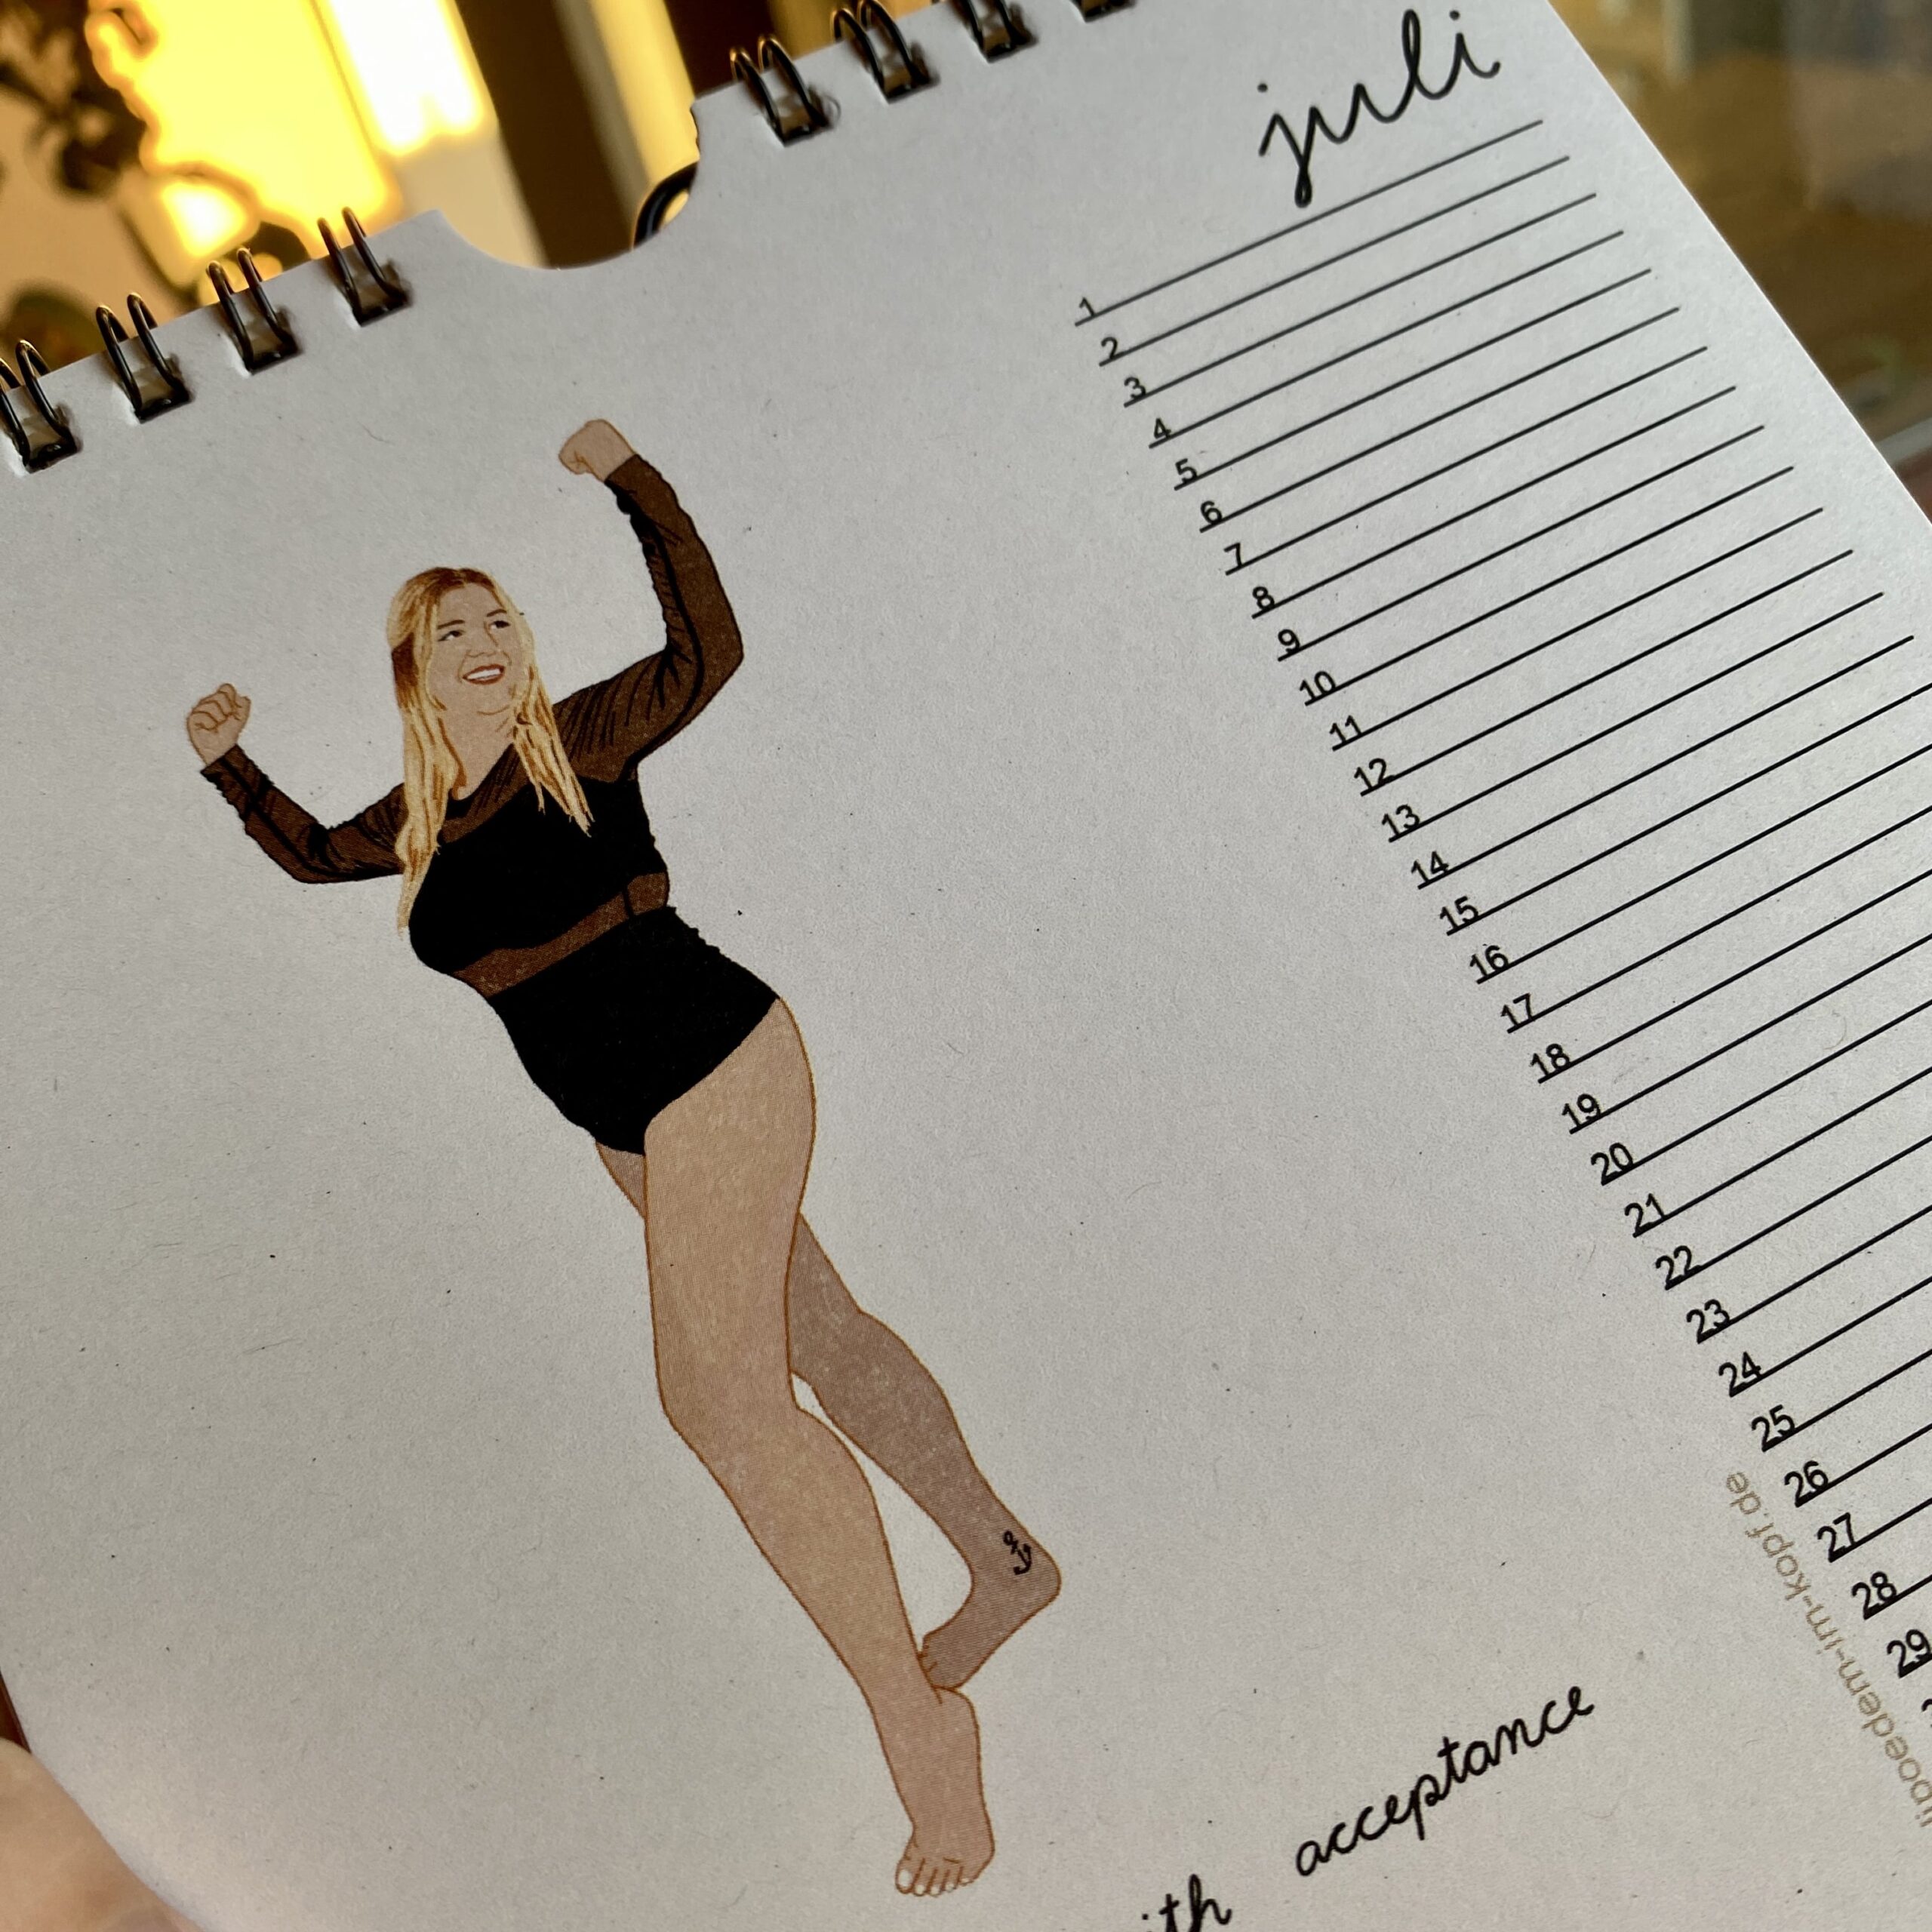 juli
1
2
3
4
5
6
7
8
9
10
11
12
13
14
15
16
17
18
19
20
21
22
23
24
25
26
27
28
29
acceptance